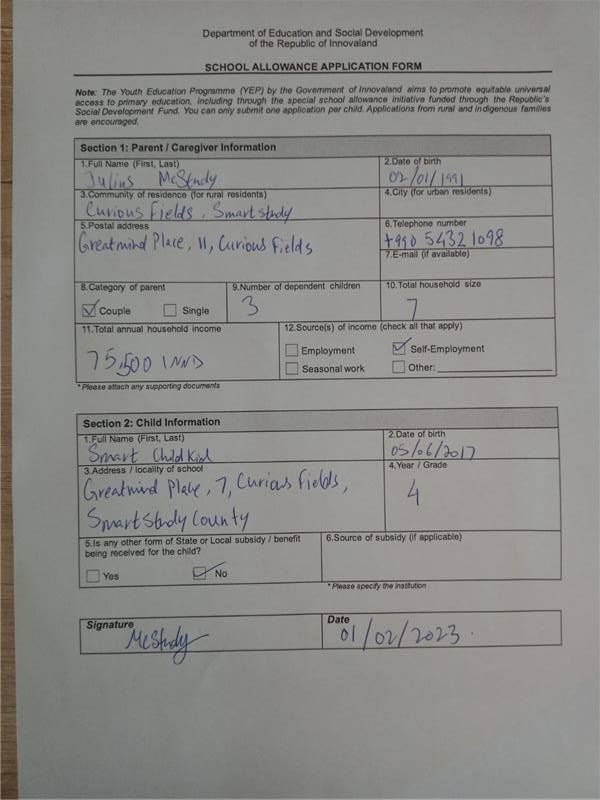 Department of Education and Social Development
of the Republic of Innovaland
SCHOOL ALLOWANCE APPLICATION FORM
Note: The Youth Education Programme (YEP) by the Government of Innovaland aims to promote equitable universal
access to primary education, including through the special school allowance initiative funded through the Republic's
Social Development Fund. You can only submit one application per child. Applications from rural and indigenous families
are encouraged.
Section 1: Parent / Caregiver Information
1.Full Name (First, Last)
Julius McStudy
2.Date of birth
02/01/1991
3.Community of residence (for rural residents)
Curious Fields, Smartstudy
4.City (for urban residents)
5.Postal address
Greatmind Place, 11, Curious Fields
6.Telephone number
+990 54321098
7.E-mail (if available)
8.Category of parent
Couple
Single
9.Number of dependent children
3
10.Total household size
7
11.Total annual household income
75,500 INND
12.Source(s) of income (check all that apply)
Employment
Self-Employment
Seasonal work
Other:
*Please attach any supporting documents
Section 2: Child Information
1.Full Name (First, Last)
Smart Child
2.Date of birth
05/06/2017
3.Address / locality of school
Greatmind Place, 7, Curious Fields,
Smartstudy County
4.Year / Grade
4
5.Is any other form of State or Local subsidy / benefit
being received for the child?
Yes
No
6.Source of subsidy (if applicable)
*Please specify the institution
Signature
McStudy
Date
01/02/2023.